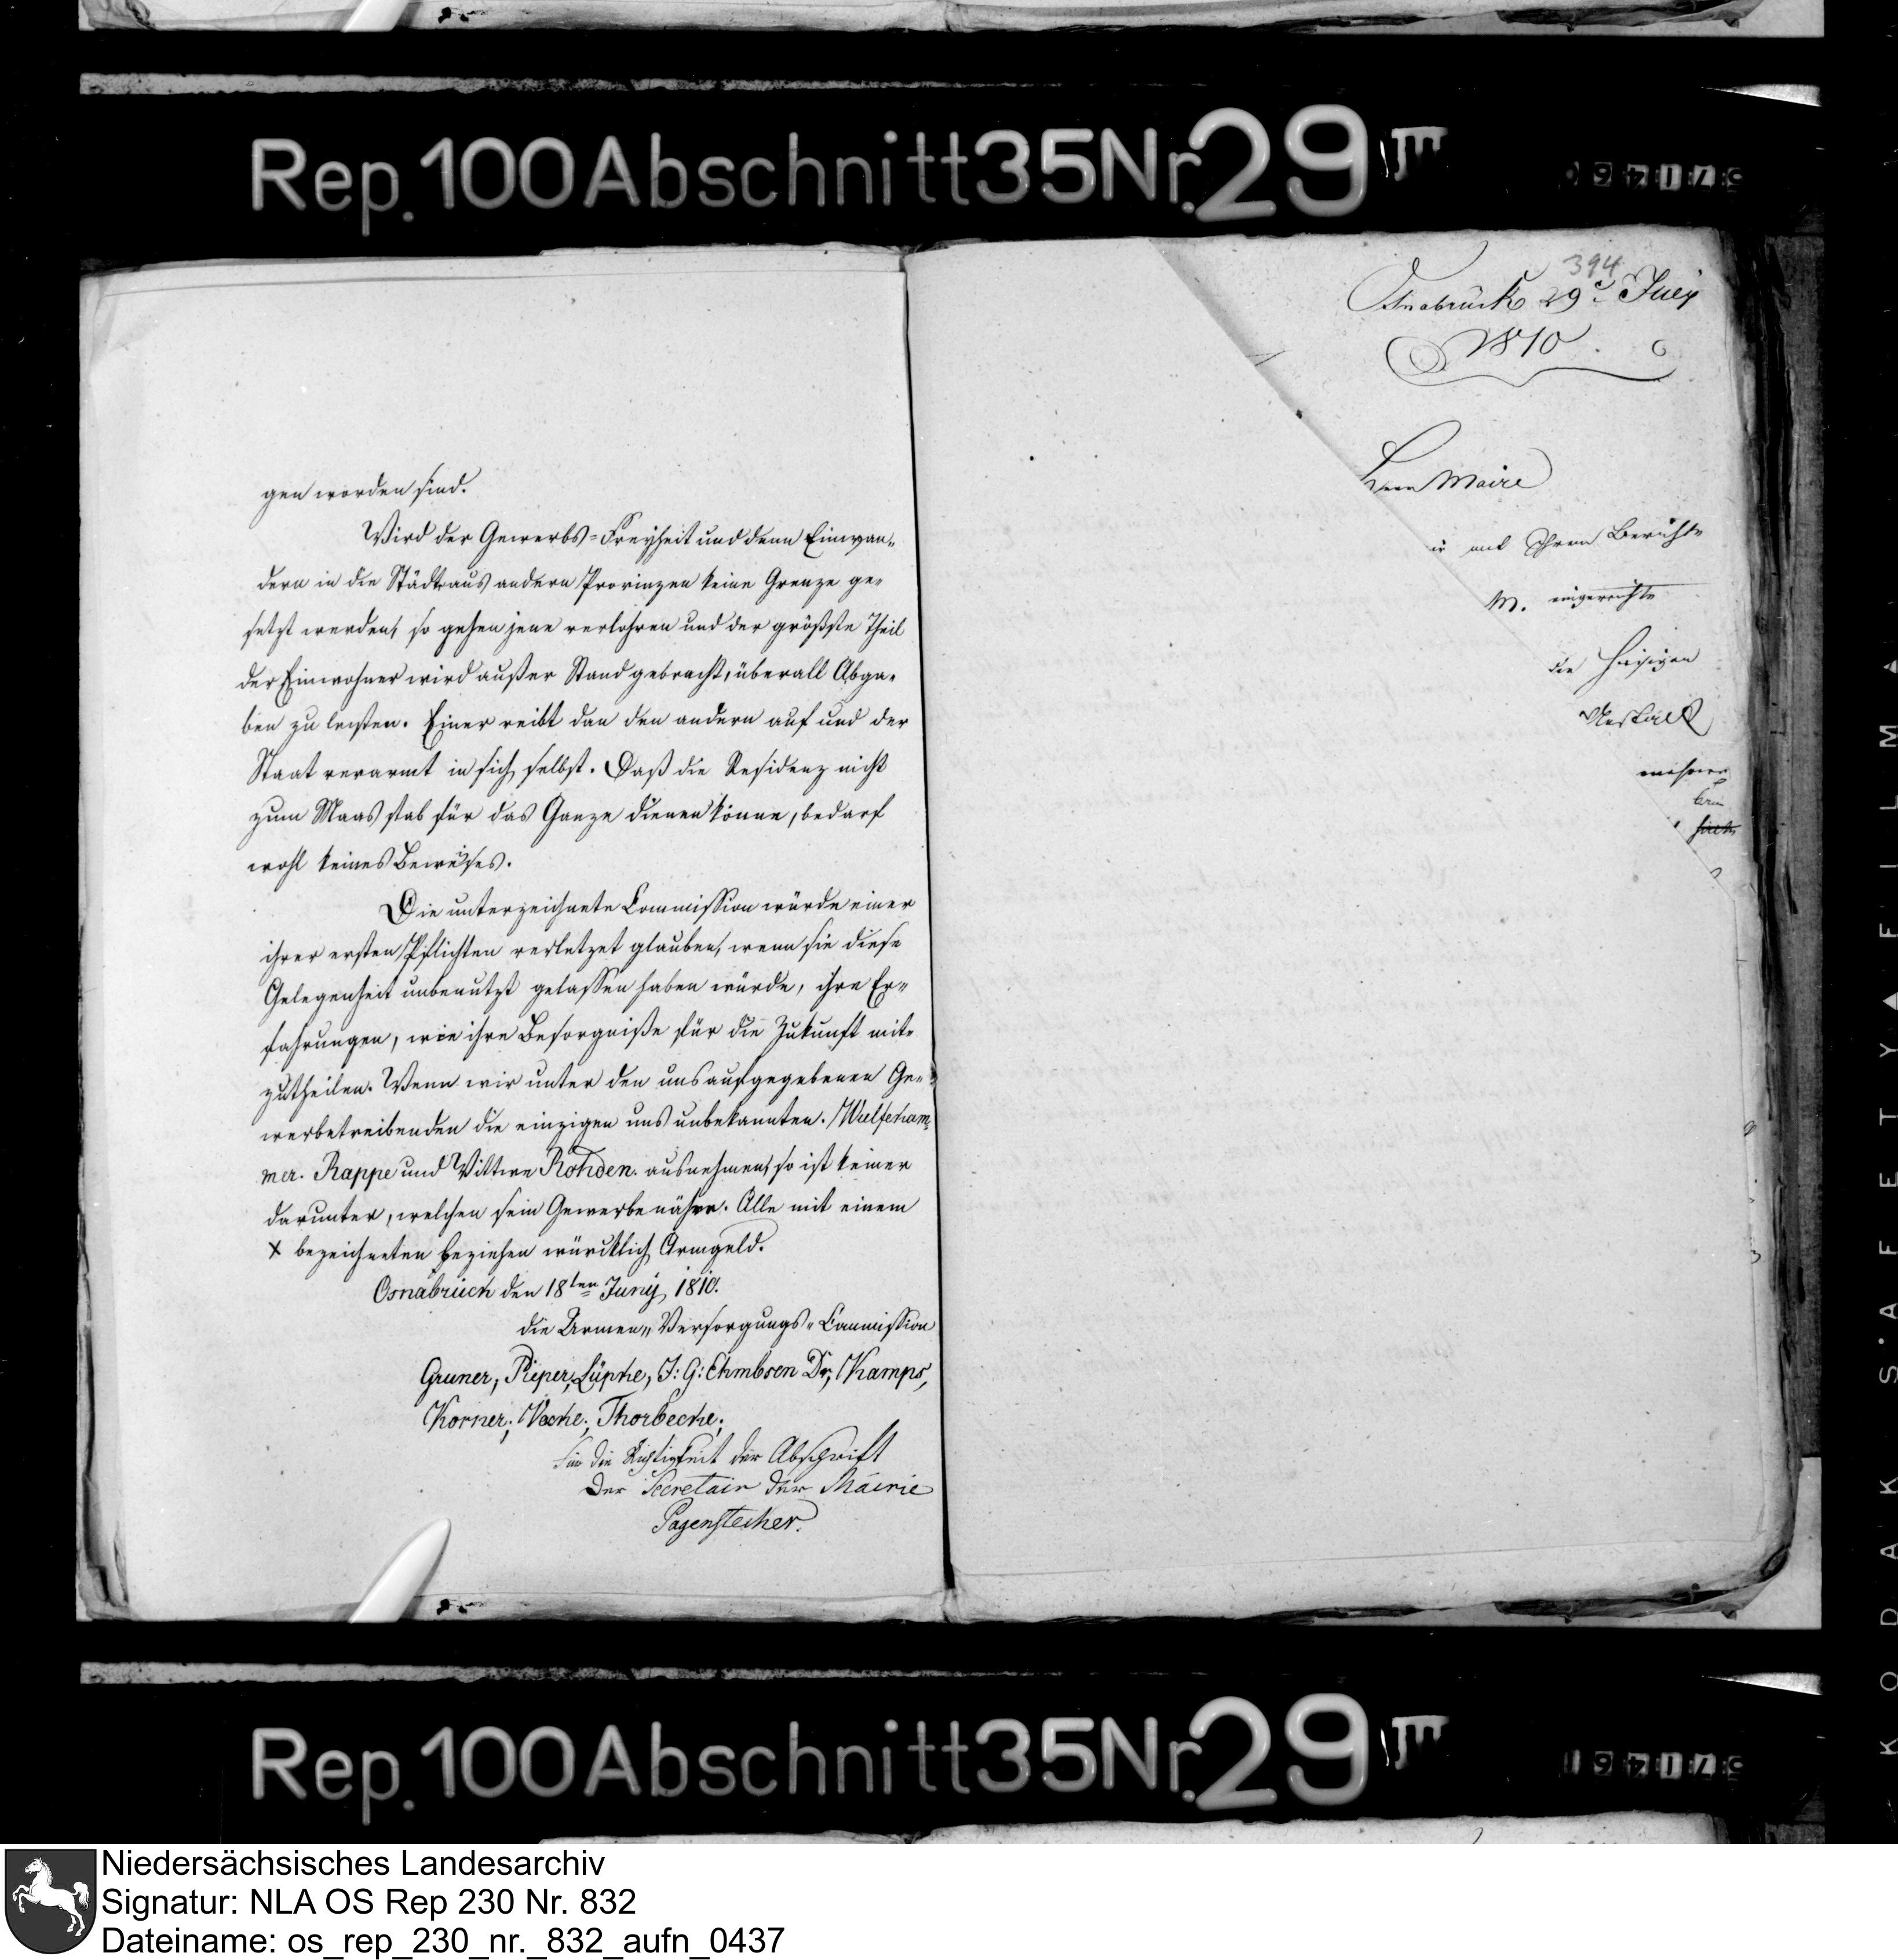 Rep. 100 Abschnitt 35 Nr. 29 III
gen worden sind.
Wird der Gewerbs-Freyheit und dem Einwan-
dern in die Städte aus andern Provinzen keine Grenze ge-
setzt werden, so gehen jene verlohren und der größste Theil
der Einwohner wird außer Stand gebracht, überall Abga-
ben zu leisten. Einer reibt dan den andern auf und der
Staat verarmt in sich selbst. Daß die Residenz nicht
zum Maasstab für das Ganze dienen könne, bedarf
wohl keines Beweises.
Die unterzeichnete Commission würde einer
ihrer ersten Pflichten verletzet glauben, wenn sie diese
Gelegenheit unbenutzt gelassen haben würde, ihre Er-
fahrungen, wie ihre Besorgniße für die Zukunft mit-
zutheilen. Wenn wir unter den uns aufgegebenen Ge-
werbetreibenden die einzigen uns unbekannten. Wulfeham-
mer. Rappe und Wittwe Rohden. ausnehmen, so ist keiner
darunter, welchen sein Gewerbe nähre. Alle mit einem
x bezeichneten beziehen würcklich Armgeld.
Osnabrück den 18ten Juny 1810.
die Armen-Versorgungs-Commission
Gruner, Pieper, Lüpke, J: G: Ehmbsen Dr, Kamps,
Korner; Thorbecke;
Für die Richtigkeit der Abschrift
Der Secretair der Mairie
Pagenstecher.
394
Osnabrück 29
1810.
Herrn Maire
mit Ihrem Berichte
M. eingereichte
die hiesigen
mehrere
Rep. 100 Abschnitt 35 Nr. 29 III
KODAK SAFETY FILM
Niedersächsisches Landesarchiv
Signatur: NLA OS Rep 230 Nr. 832
Dateiname: os_rep_230_nr._832_aufn_0437